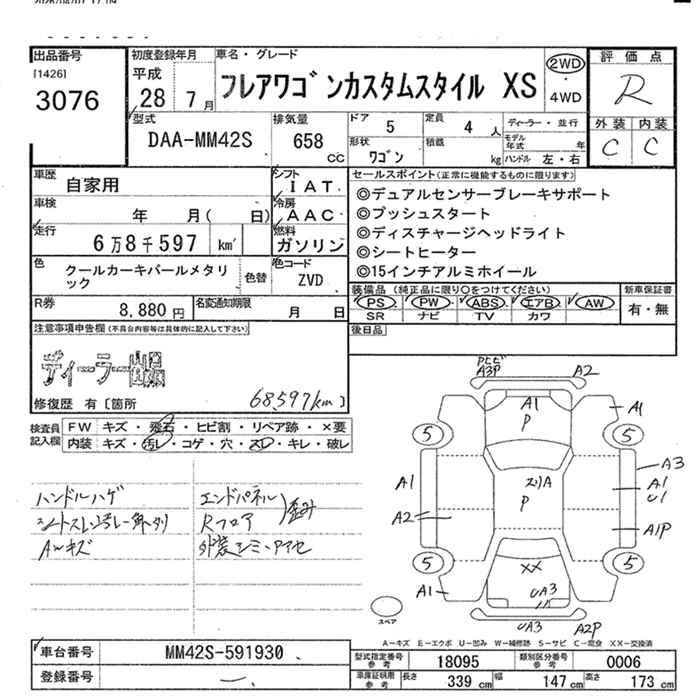 出品番号
[1426]
3076
初度登録年月
平成
28 7月
車名・グレード
フレアワゴンカスタムスタイル XS
2WD
・
4WD
評価点
R
外装 内装
C C
型式
DAA-MM42S
排気量
658
cc
ドア 5
定員 4 人
形状 ワゴン
積載 kg
ディーラー・並行
モデル年式 年
ハンドル 左・右
車歴
自家用
車検
年 月( 日)
走行
6万8千597 km
シフト
IAT
冷房
AAC
燃料
ガソリン
色
クールカーキパールメタリック
色替
色コード
ZVD
R券
8,880円
名変通知期限
月 日
セールスポイント(正常に機能するものに限ります)
◎デュアルセンサーブレーキサポート
◎プッシュスタート
◎ディスチャージヘッドライト
◎シートヒーター
◎15インチアルミホイール
装備品 (純正品に限り○をつけてください)
PS PW ABS エアB AW
SR ナビ TV カワ
新車保証書
有・無
後日品
注意事項申告欄(不具合内容等は具体的に記入して下さい)
ディーラー
修復歴 有〔箇所
68,597km)
検査員記入欄
FW キズ・飛石・ヒビ割・リペア跡・×要
内装 キズ・汚レ・コゲ・穴・スレ・キレ・破レ
ハンドルハゲ
シートスレ
AWキズ
エンドパネル
Rフロア
歪み
A3P A2
A1
P
A1
5 5
A1
A2
P
A3
A1
U1
A1P
5 5
A1
XX
UA3
UA3 A2P
スペア
A―キズ E―エクボ U―凹み W―補修跡 S―サビ C―腐食 XX―交換済
車台番号
MM42S-591930
登録番号
型式指定番号
参考
18095
類別区分番号
参考
0006
車庫証明用
参考
長さ 339 cm
幅 147 cm
高さ 173 cm